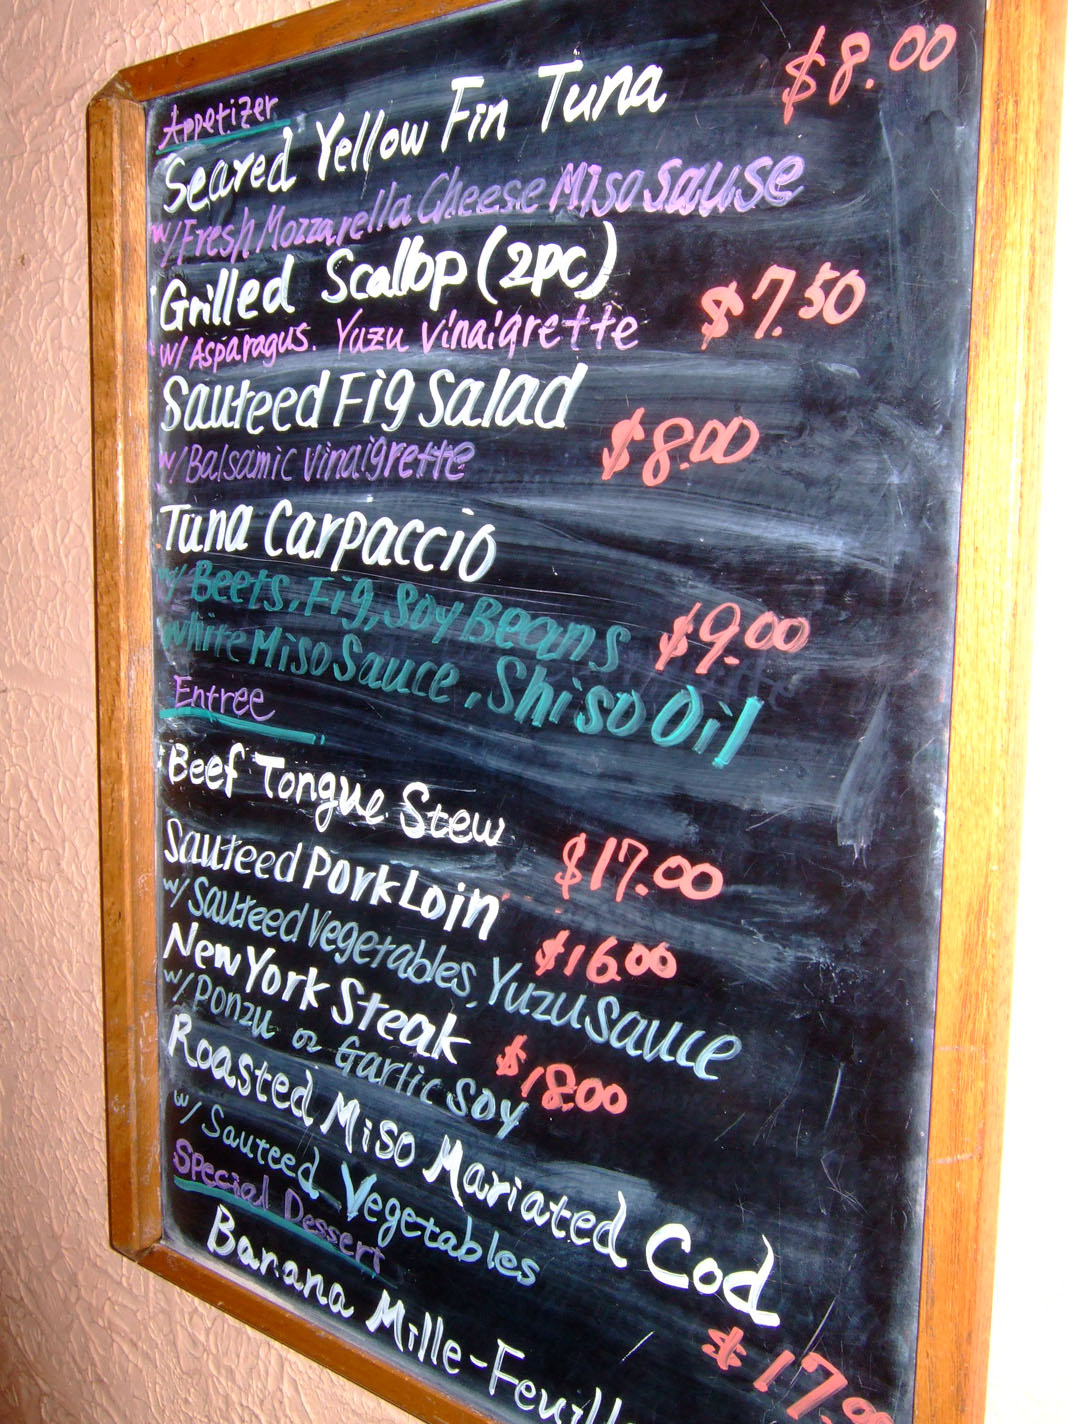 Appetizer
Seared Yellow Fin Tuna $8.00
w/Fresh Mozzarella Cheese Miso Sause
Grilled Scallop (2PC) $7.50
w/ Asparagus. Yuzu Vinaigrette
Sauteed Fig Salad $8.00
w/Balsamic Vinaigrette
Tuna Carpaccio
w/ Beets, Fig, Soy Beans $9.00
White Miso Sauce, Shiso Oil
Entree
Beef Tongue Stew $17.00
Sauteed Pork Loin $16.00
w/Sauteed Vegetables, Yuzu Sauce
New York Steak $18.00
w/ Ponzu or Garlic Soy
Roasted Miso Mariated Cod $17.00
w/ Sauteed Vegetables
Special Dessert
Banana Mille-Feuill